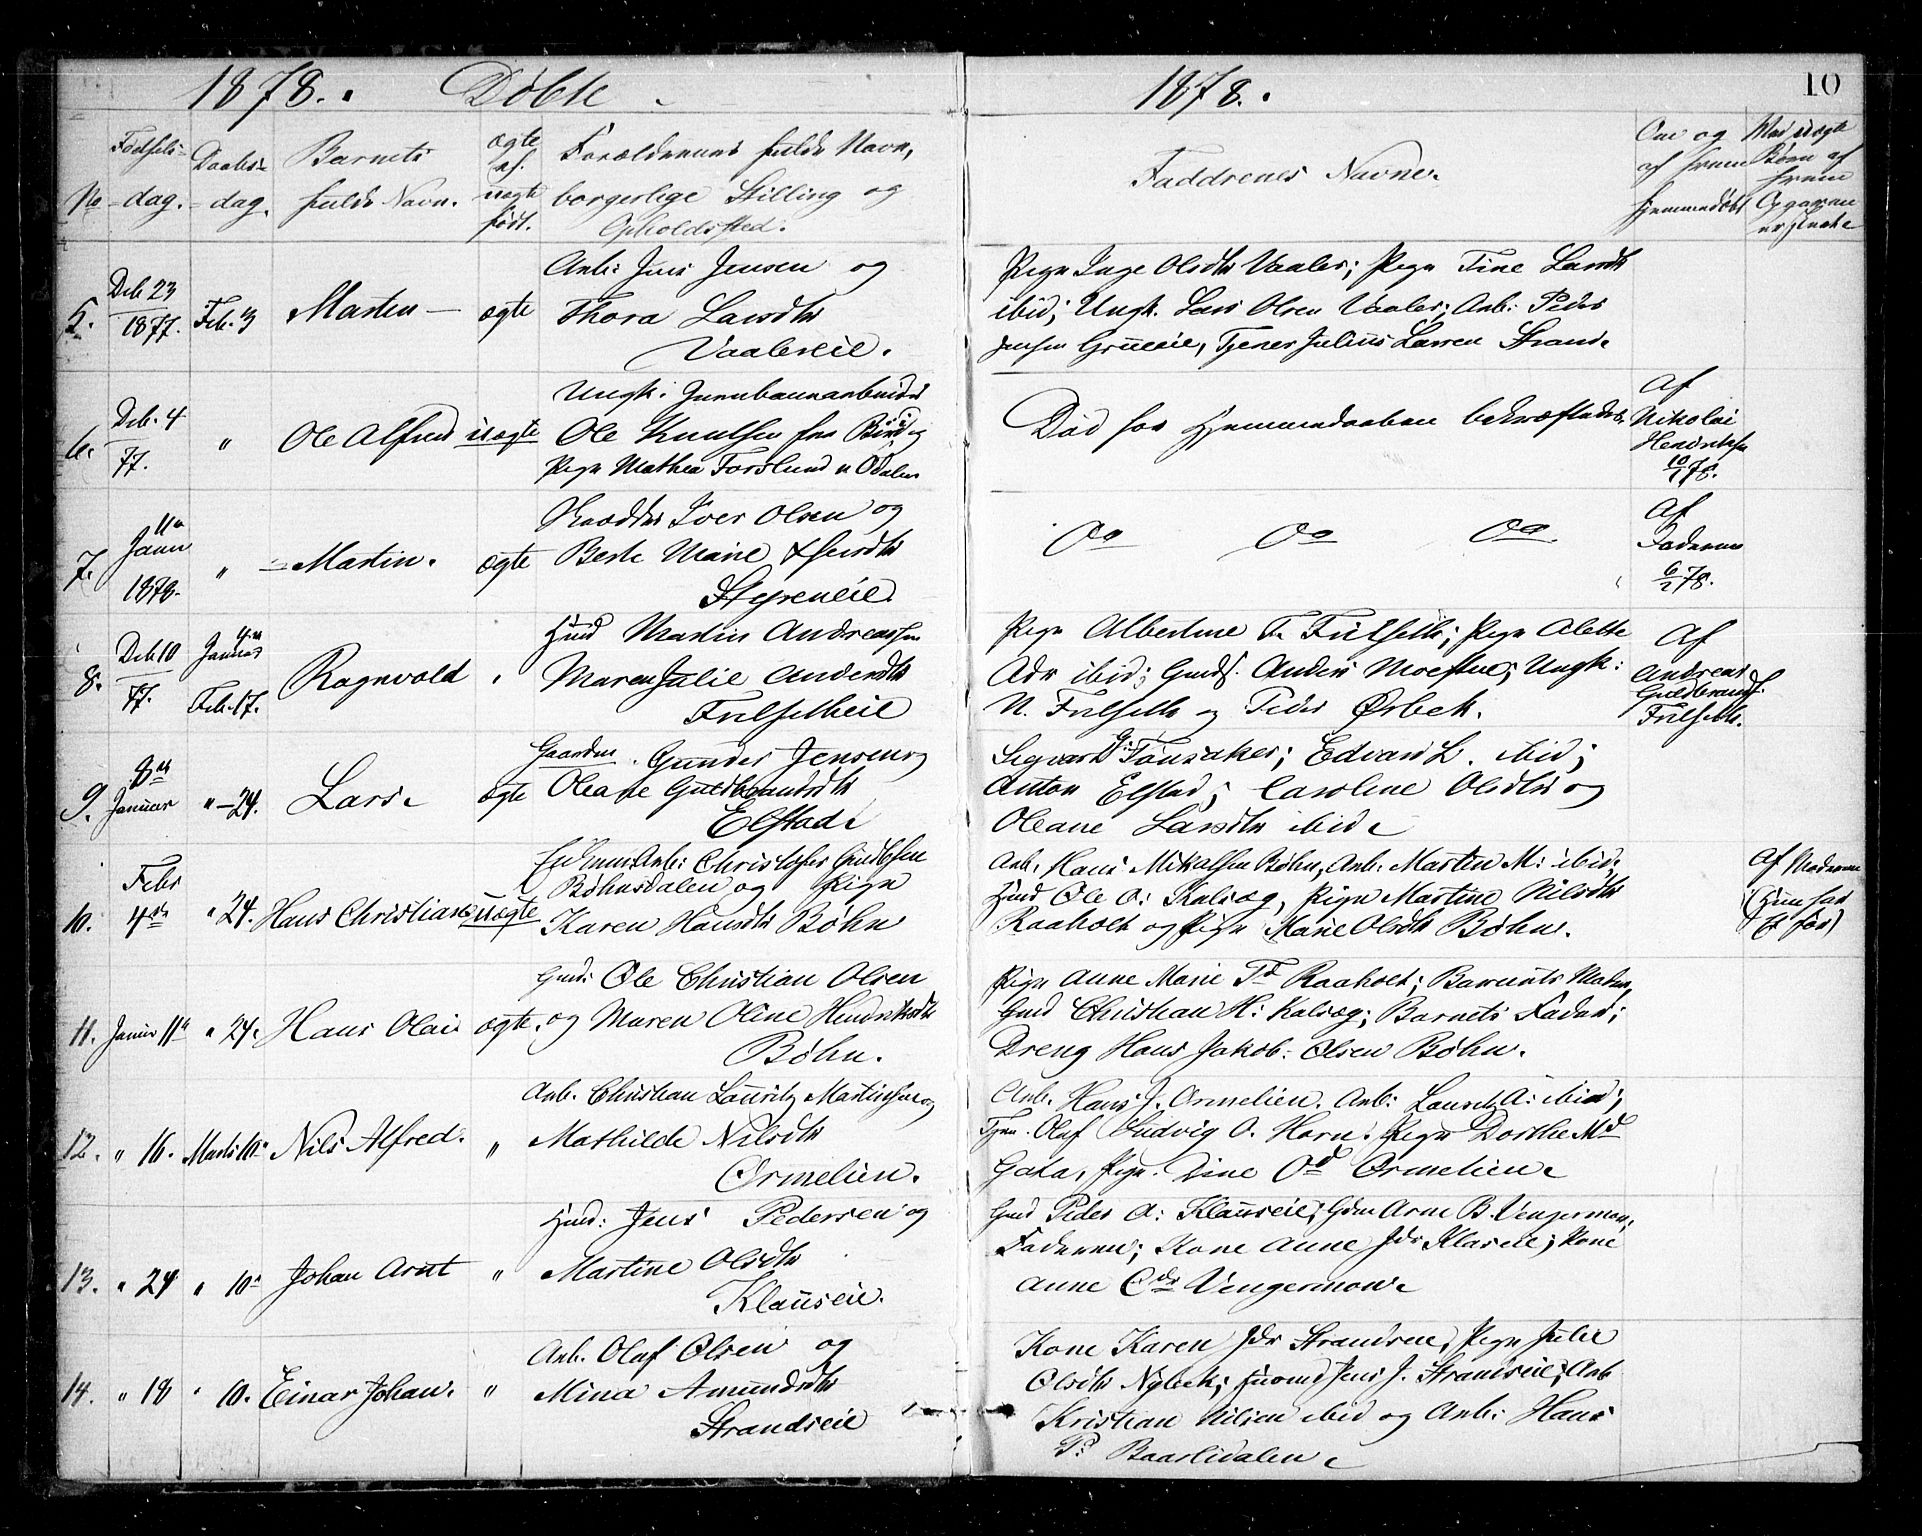 1878. Døbte
1878.
10
No
Fødsels-
dag.
Daabs-
dag.
Barnets
fulde Navn.
ægte
el.
uægte
født.
Forældrenes fulde Navn,
borgerlige Stilling og
Opholdssted.
Faddrenes Navne.
Om og
af hvem
hjemmedøbt
Ved uægte
Børn af
hvem
Opgaven
er skeet
5.
Deb 23
1877.
Feb. 3
Martin
ægte
Arb: Jens Jensen og
Thora Larsdtr
Vaalereie.
Pige Inge Olsdtr Vaaler; Pige Tine Larsdtr
ibid; Ungk. Lars Olsen Vaaler; Arb: Peder
Jensen Grueeie, Tjener Julius Larsen Strand.
6.
Deb. 4
77.
"
Ole Alfred
uægte
Ungk: Jernbanearbeider
Ole Knutsen fra og
Pige Mathea Forslund n Odalen
Død før Hjemmedaaben bekræftedes,
Af
Nikolai
Henriksen
10/1 78.
7.
11te
Janu
1878.
"
Martin.
ægte
Skrædder Iver Olsen og
Berte Marie
Styreneie.
Do Do Do
Af
Faderen
6/2 78.
8.
Deb. 10
77.
Januar
Feb. 17.
Ragnvald
"
Hmd Martin Andreassen
Maren Julie Andersdtr
Fulsetheie
Pige Albertine F. Fulseth; Pige Alette
Adr ibid; Gmds. Anders Moestue; Ungk:
N. Fulseth og Peder Ørbek.
Af
Andreas
Guldbrands.
Fulseth.
9.
8de
Januar
" - 24.
Lars.
ægte
Gaardm. Gunder Jensen og
Oleane Guldbrandsdtr
Elstad.
Sigvart G: Tønsaker; Edvard L. ibid;
Anton Elstad; Caroline Olsdtr og
Oleane Larsdtr ibid.
10.
Febr
4de
" 24.
Hans Christian
uægte
Enkemand Arb: Christofer
Bøhnsdalen og Pige
Karen Hansdtr Bøhn
Arb. Hans Mikalsen Bøhn, Arb: Martin M: ibid;
Hmd Ole O: Kalvøg, Pige Martine Nilsdtr
Raaholt og Pige Marie Olsdtr Bøhn.
Af Moderen
(Hun har
Et før)
11.
Janur 11te
" 24.
Hans Olai
ægte.
Gmd: Ole Christian Olsen
og Maren Oline Hendriksdtr
Bøhn.
Pige Anne Marie Td Raaholt; Barnets Moder,
Gmd Christian H: Kalvøg; Barnets Fader;
Dreng Hans Jakob: Olsen Bøhn.
12.
" 16.
Marts 10.
Nils Alfred.
"
Arb. Christian Lauritz Martinsen og
Mathilde Nilsdtr
Ormelien.
Arb. Hans J. Ormelien. Arb: Lauritz A: ibid;
Tjen. Olaf Ludvig O. Horn. Pige Dorthe Md
Gata, Pige. Line Od Ormelien.
13.
" 24
" 10
Johan Arnt
"
Hmd: Jens Pedersen og
Martine Olsdtr
Klauseie.
Gmd Peder A: Klauseie; Gdm Arne B. Vengermoen;
Faderen; Kone Anne Jdr Klaseie; Kone
Anne Cdr Vengermoen.
14.
" 18
" 10.
Einar Johan.
"
Arb. Olaf Olsen og
Mina Amundsdtr
Strandseie
Kone Karen Jdr Strandseie, Pige Julie
Olsdtr Nybek; Huusmd Jens J. Strandseie; Arb
Kristian Nilsen ibid og Arb: Hans
P: Baarlidalen.